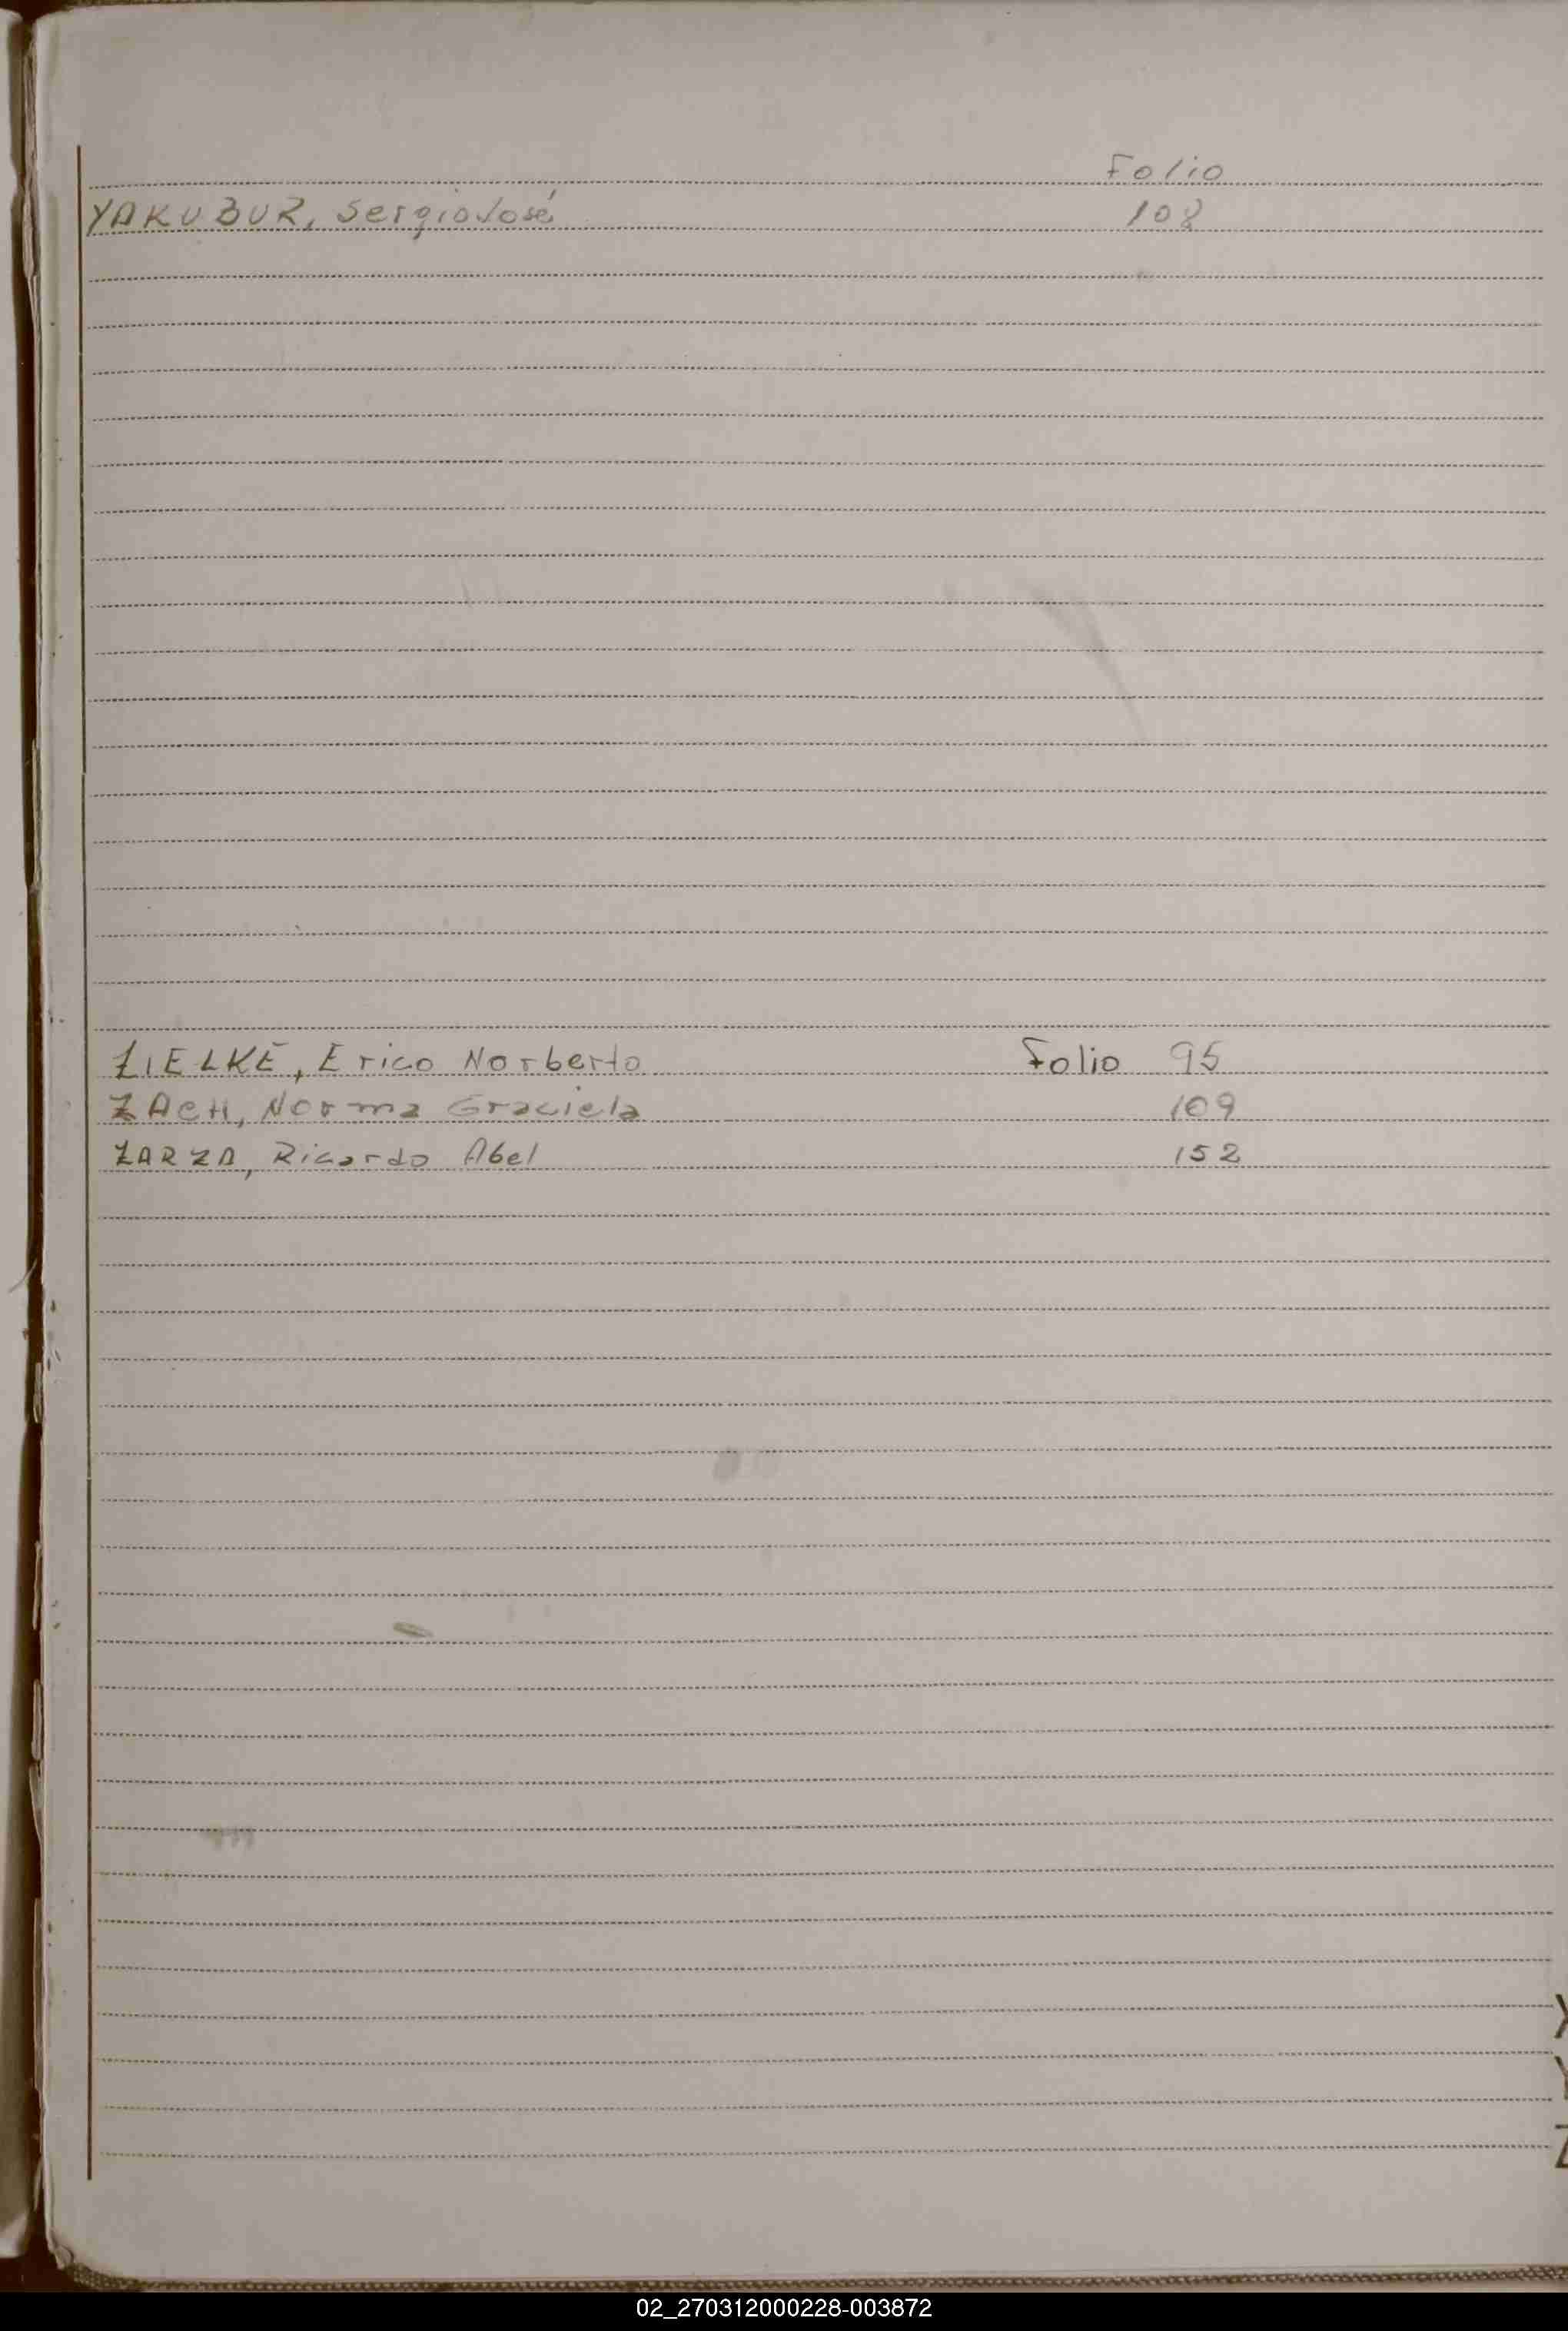 Folio
YAKUBUR, Sergio José 108
ZIELKE, Erico Norberto Folio 95
ZACH, Norma Graciela 109
ZARZA, Ricardo Abel 152
X
Y
Z
02_270312000228-003872